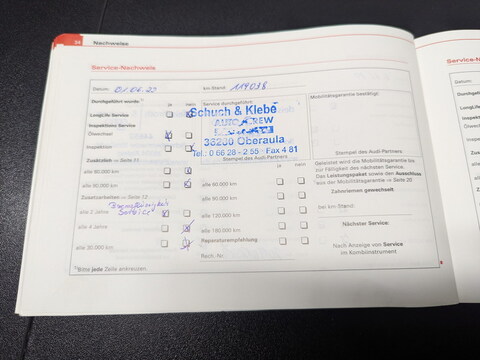 34 Nachweise
Service-Nachweis
Datum: 01.04.22 km-Stand: 114038
Durchgeführt wurde: ja nein
LongLife Service
Inspektions-Service
Ölwechsel
Inspektion
Service durchgeführt:
Schuch & Klebé
AUTO CREW
36280 Oberaula
Tel.: 0 66 28 - 2 55 · Fax 4 81
Stempel des Audi-Partners
Mobilitätsgarantie bestätigt:
Stempel des Audi-Partners
Zusätzlich → Seite 11
alle 60.000 km
alle 90.000 km
Zusatzarbeiten → Seite 12 ja nein
Bremsflüssigkeit
Service
alle 2 Jahre
alle 4 Jahre
alle 30.000 km
alle 60.000 km
alle 90.000 km
alle 120.000 km
alle 180.000 km
Reparaturempfehlung
Rech.-Nr.
Geleistet wird die Mobilitätsgarantie bis
zur Fälligkeit des nächsten Service.
Das Leistungspaket sowie den Ausschluss
aus der Mobilitätsgarantie → Seite 20
Zahnriemen gewechselt.
bei km-Stand:
Nächster Service:
Nach Anzeige von Service
im Kombiinstrument
Bitte jede Zeile ankreuzen.
Datum:
Durchgeführt
LongLife Se
Inspektions
Ölwechsel
Inspektion
Zusätzlich
alle 60.0
alle 90
Zusatz
alle